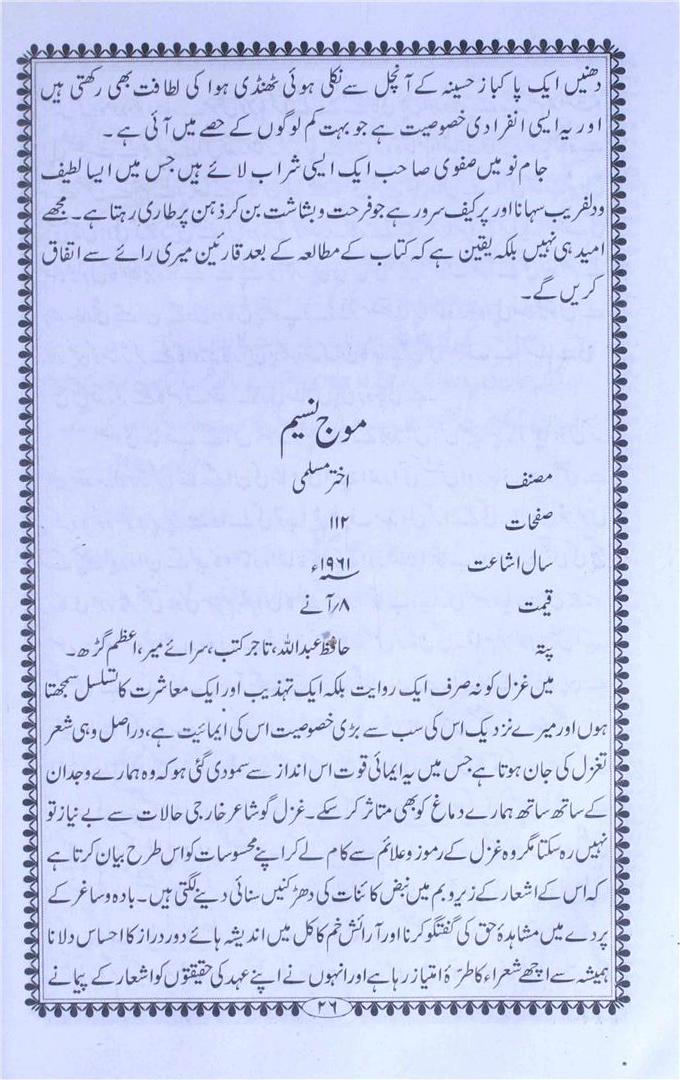 دھنیں ایک پاکباز حسینہ کے آنچل سے نکلی ہوئی ٹھنڈی ہوا کی لطافت بھی رکھتی ہیں
اور یہ ایسی انفرادی خصوصیت ہے جو بہت کم لوگوں کے حصے میں آئی ہے۔
جام نو میں صفوی صاحب ایک ایسی شراب لائے ہیں جس میں ایسا لطیف
ودلفریب سہانا اور پرکیف سرور ہے جو فرحت و بشاشت بن کر ذہن پر طاری رہتا ہے۔ مجھے
امید ہی نہیں بلکہ یقین ہے کہ کتاب کے مطالعہ کے بعد قارئین میری رائے سے اتفاق
کریں گے۔
موج نسیم
مصنف اختر مسلمی
صفحات ۱۱۲
سال اشاعت ۱۹۶۱ء
قیمت ۸/آنے
پتہ حافظ عبداللہ، تاجر کتب، سرائے میر، اعظم گڑھ
میں غزل کو نہ صرف ایک روایت بلکہ ایک تہذیب اور ایک معاشرت کا تسلسل سمجھتا
ہوں اور میرے نزدیک اس کی سب سے بڑی خصوصیت اس کی ایمائیت ہے، دراصل وہی شعر
تغزل کی جان ہوتا ہے جس میں یہ ایمائی قوت اس انداز سے سمودی گئی ہو کہ وہ ہمارے وجدان
کے ساتھ ساتھ ہمارے دماغ کو بھی متاثر کر سکے۔ غزل گو شاعر خارجی حالات سے بے نیاز تو
نہیں رہ سکتا مگر وہ غزل کے رموز و علائم سے کام لے کر اپنے محسوسات کو اس طرح بیان کرتا ہے
کہ اس کے اشعار کے زیر و بم میں نبض کائنات کی دھڑکنیں سنائی دینے لگتی ہیں۔ بادہ و ساغر کے
پردے میں مشاہدۂ حق کی گفتگو کرنا اور آرائش خم کاکل میں اندیشہ ہائے دور دراز کا احساس دلانا
ہمیشہ سے اچھے شعراء کا طرۂ امتیاز رہا ہے اور انہوں نے اپنے عہد کی حقیقتوں کو اشعار کے پیمانے
۲۶